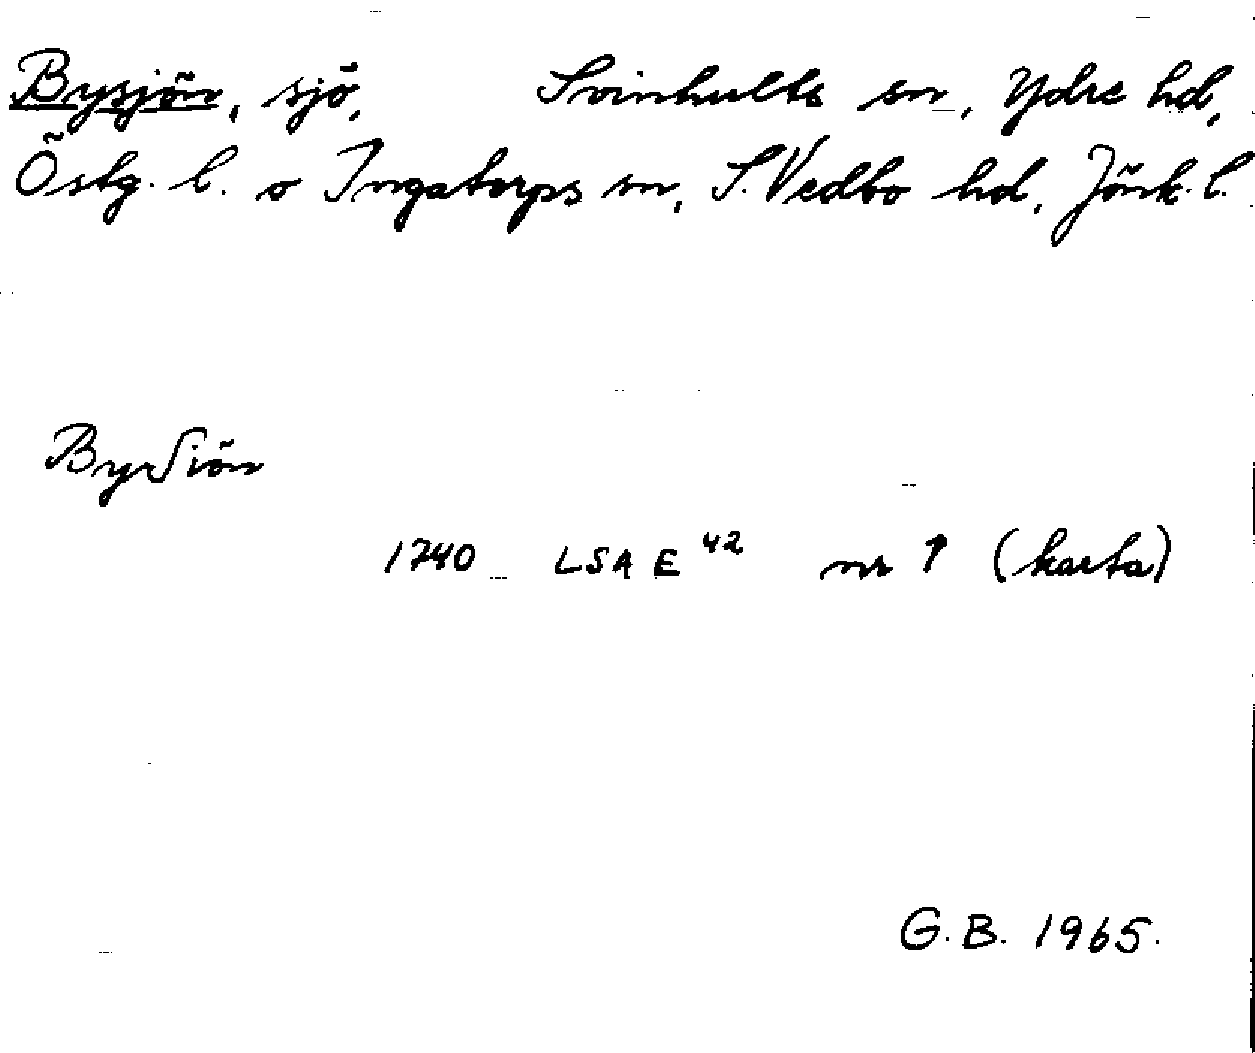 Bysjön, sjö, Svinhults sn, Ydre hd,
Östg. l. o Ingatorps sn, S. Vedbo hd, Jönk. l.
BySiön
1740 LSA E 42 nr 1 (karta)
G.B. 1965.